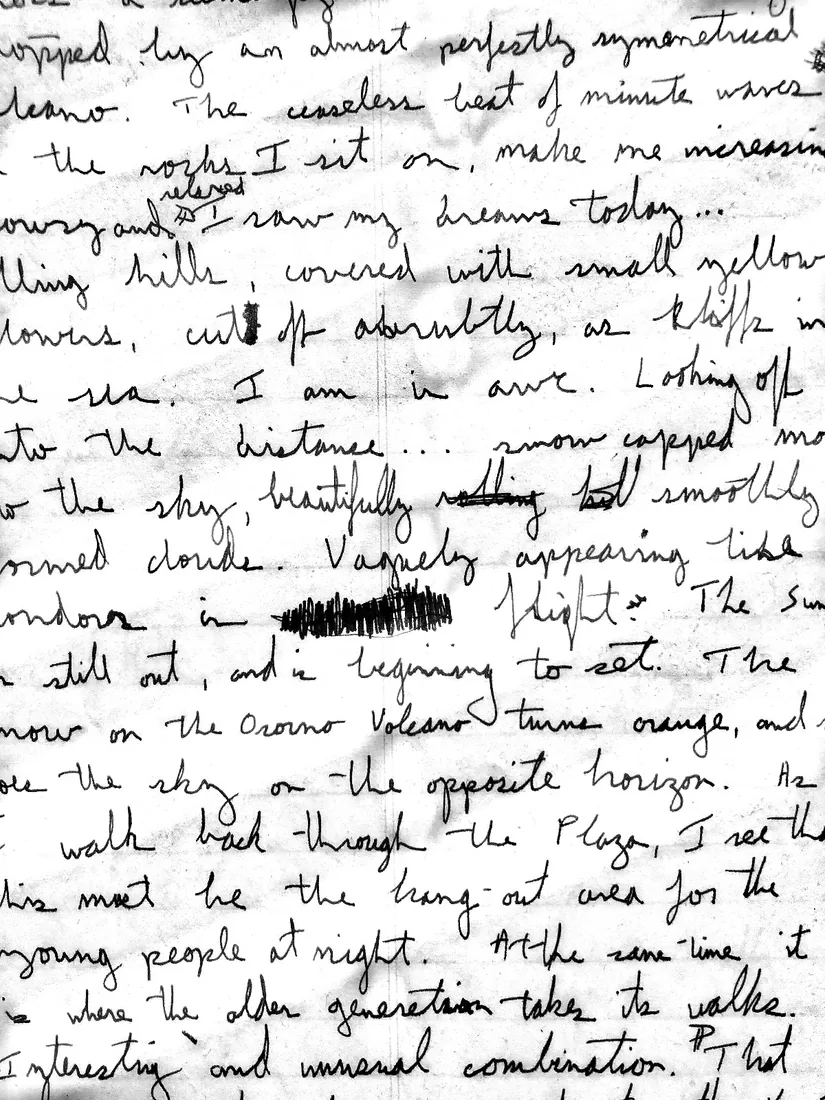 topped by an almost perfectly symmetrical
lcano. The ceaseless beat of minute waves
the rocks I sit on, make me increasin
relaxed
owsy and I saw my dreams today...
lling hills, covered with small yellow
lowers, cut off abrubtly, as kliffs in
he sea. I am in awe. Looking off
nto the distance... snow capped mo
o the sky, beautifully rolling hill smoothly
ormed clouds. Vaguely appearing like
ondors in flight. The Sun
still out, and is beginning to set. The
now on the Osorno Volcano turns orange, and
oes the sky on the opposite horizon. As
I walk back through the Plaza, I see tha
this must be the hang-out area for the
young people at night. At the same time it
is where the older generation takes its walks.
Interesting and unusual combination. That